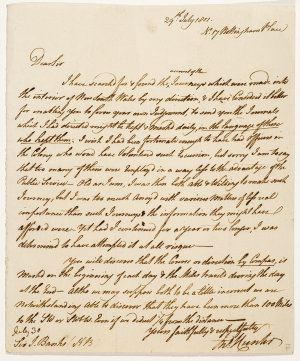 29th July 1801.
No 17 Nottingham Place
Dear Sir
I have searched for & found the Journeys which were made into
the interior of New South Wales by my direction, & I have considered it better
for enabling you to form your own Judgement, to send you the Journals
which I had directed might be kept & marked daily, in the language of those
who kept them; I wish I had been fortunate enough to have had officers in
the Colony who would have Volunteered such Excursion, but sorry I am to say
that too many of them were employed in a way less to the advantage of the
Public Service. Old as I am, I was then both able & Willing to make such
Journey, but I was too much occupied with various matters of of real
consequence than such Journeys & the information they might have
afforded were. Yet had I continued for a year or two longer, I was
determined to have attempted it at all risque.
You will discover that the Course or direction by Compass, is
Marked in the beginning of each day & the Miles travelled during the day
at the End. Altho we may suppose both to be a little incorrect we are
notwithstanding able to discover that they have been more than 100 Miles
to the
Yours faithfully & respectfully
Jno Hunter
July 30
Sir J. Banks KB